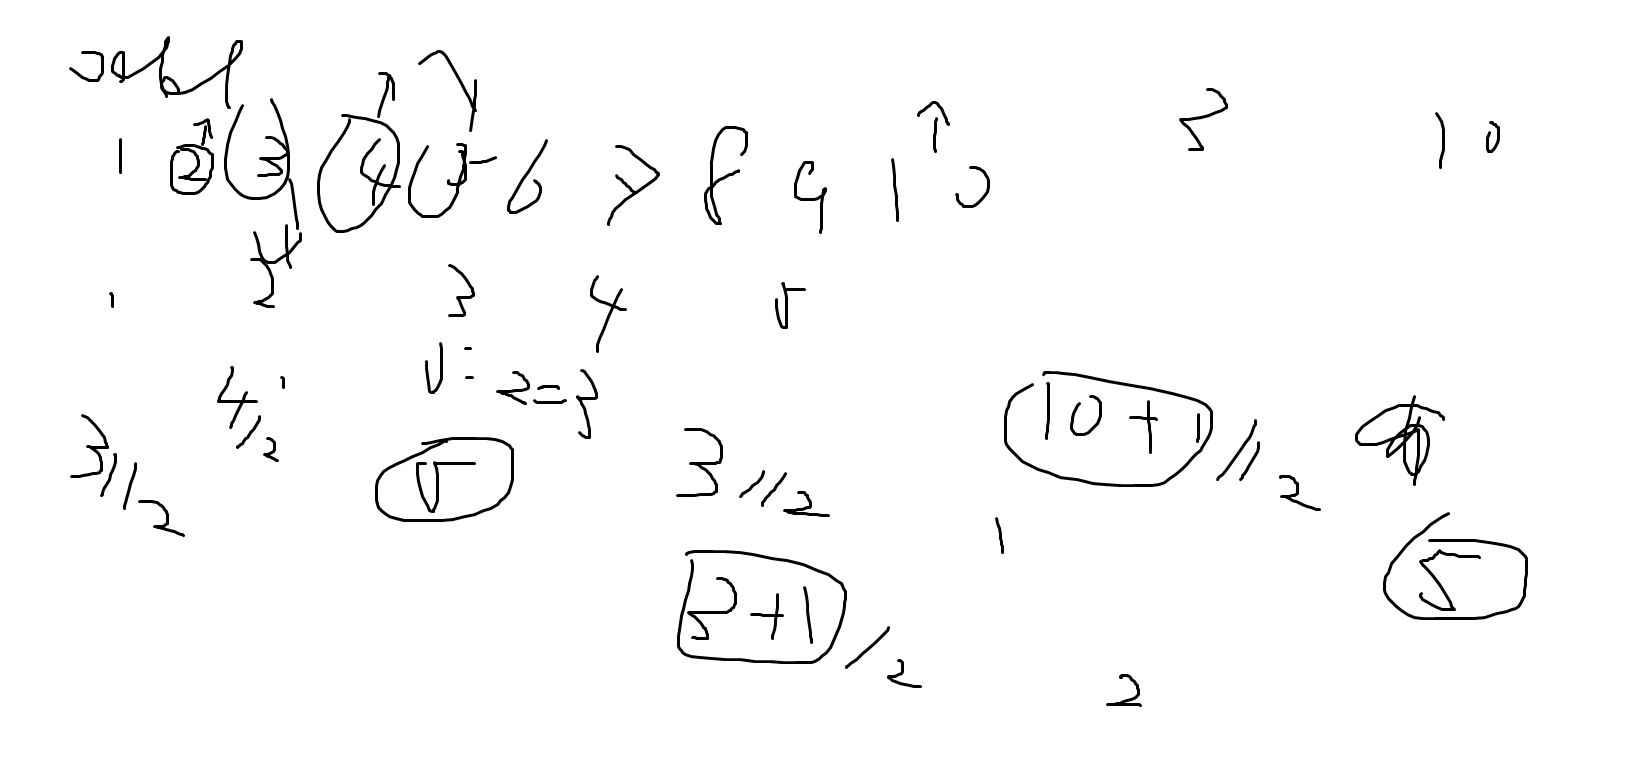 1 2 3 4 5 6 7 8 9 10 5 10
1 2 3 4 5
5 = 2 = 3
4//2
3//2 5 3//2 10+1//2
1 5
3+1//2
2